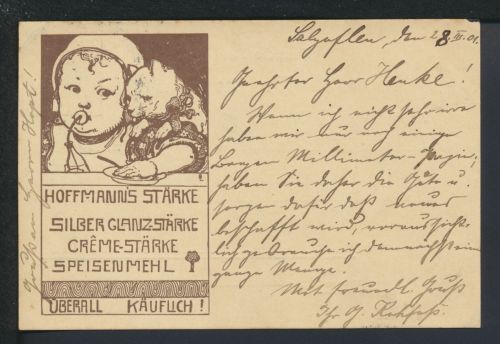 HOFFMANN'S STÄRKE
SILBER GLANZ-STÄRKE
CRÊME-STÄRKE
SPEISENMEHL
ÜBERALL KÄUFLICH!
Salzuflen, den 28. III. 01.
Geehrter Herr Henke!
Wenn ich nicht sehr irre
haben wir nur noch einige
Bogen Millimeter-Papier,
haben Sie daher die Güte u.
sorgen dafür daß neues
beschafft wird, voraussicht-
lich gebrauche ich demnächst eine
ganze Menge.
Mit freundl. Gruß
Ihr G.
Grüßen Herrn